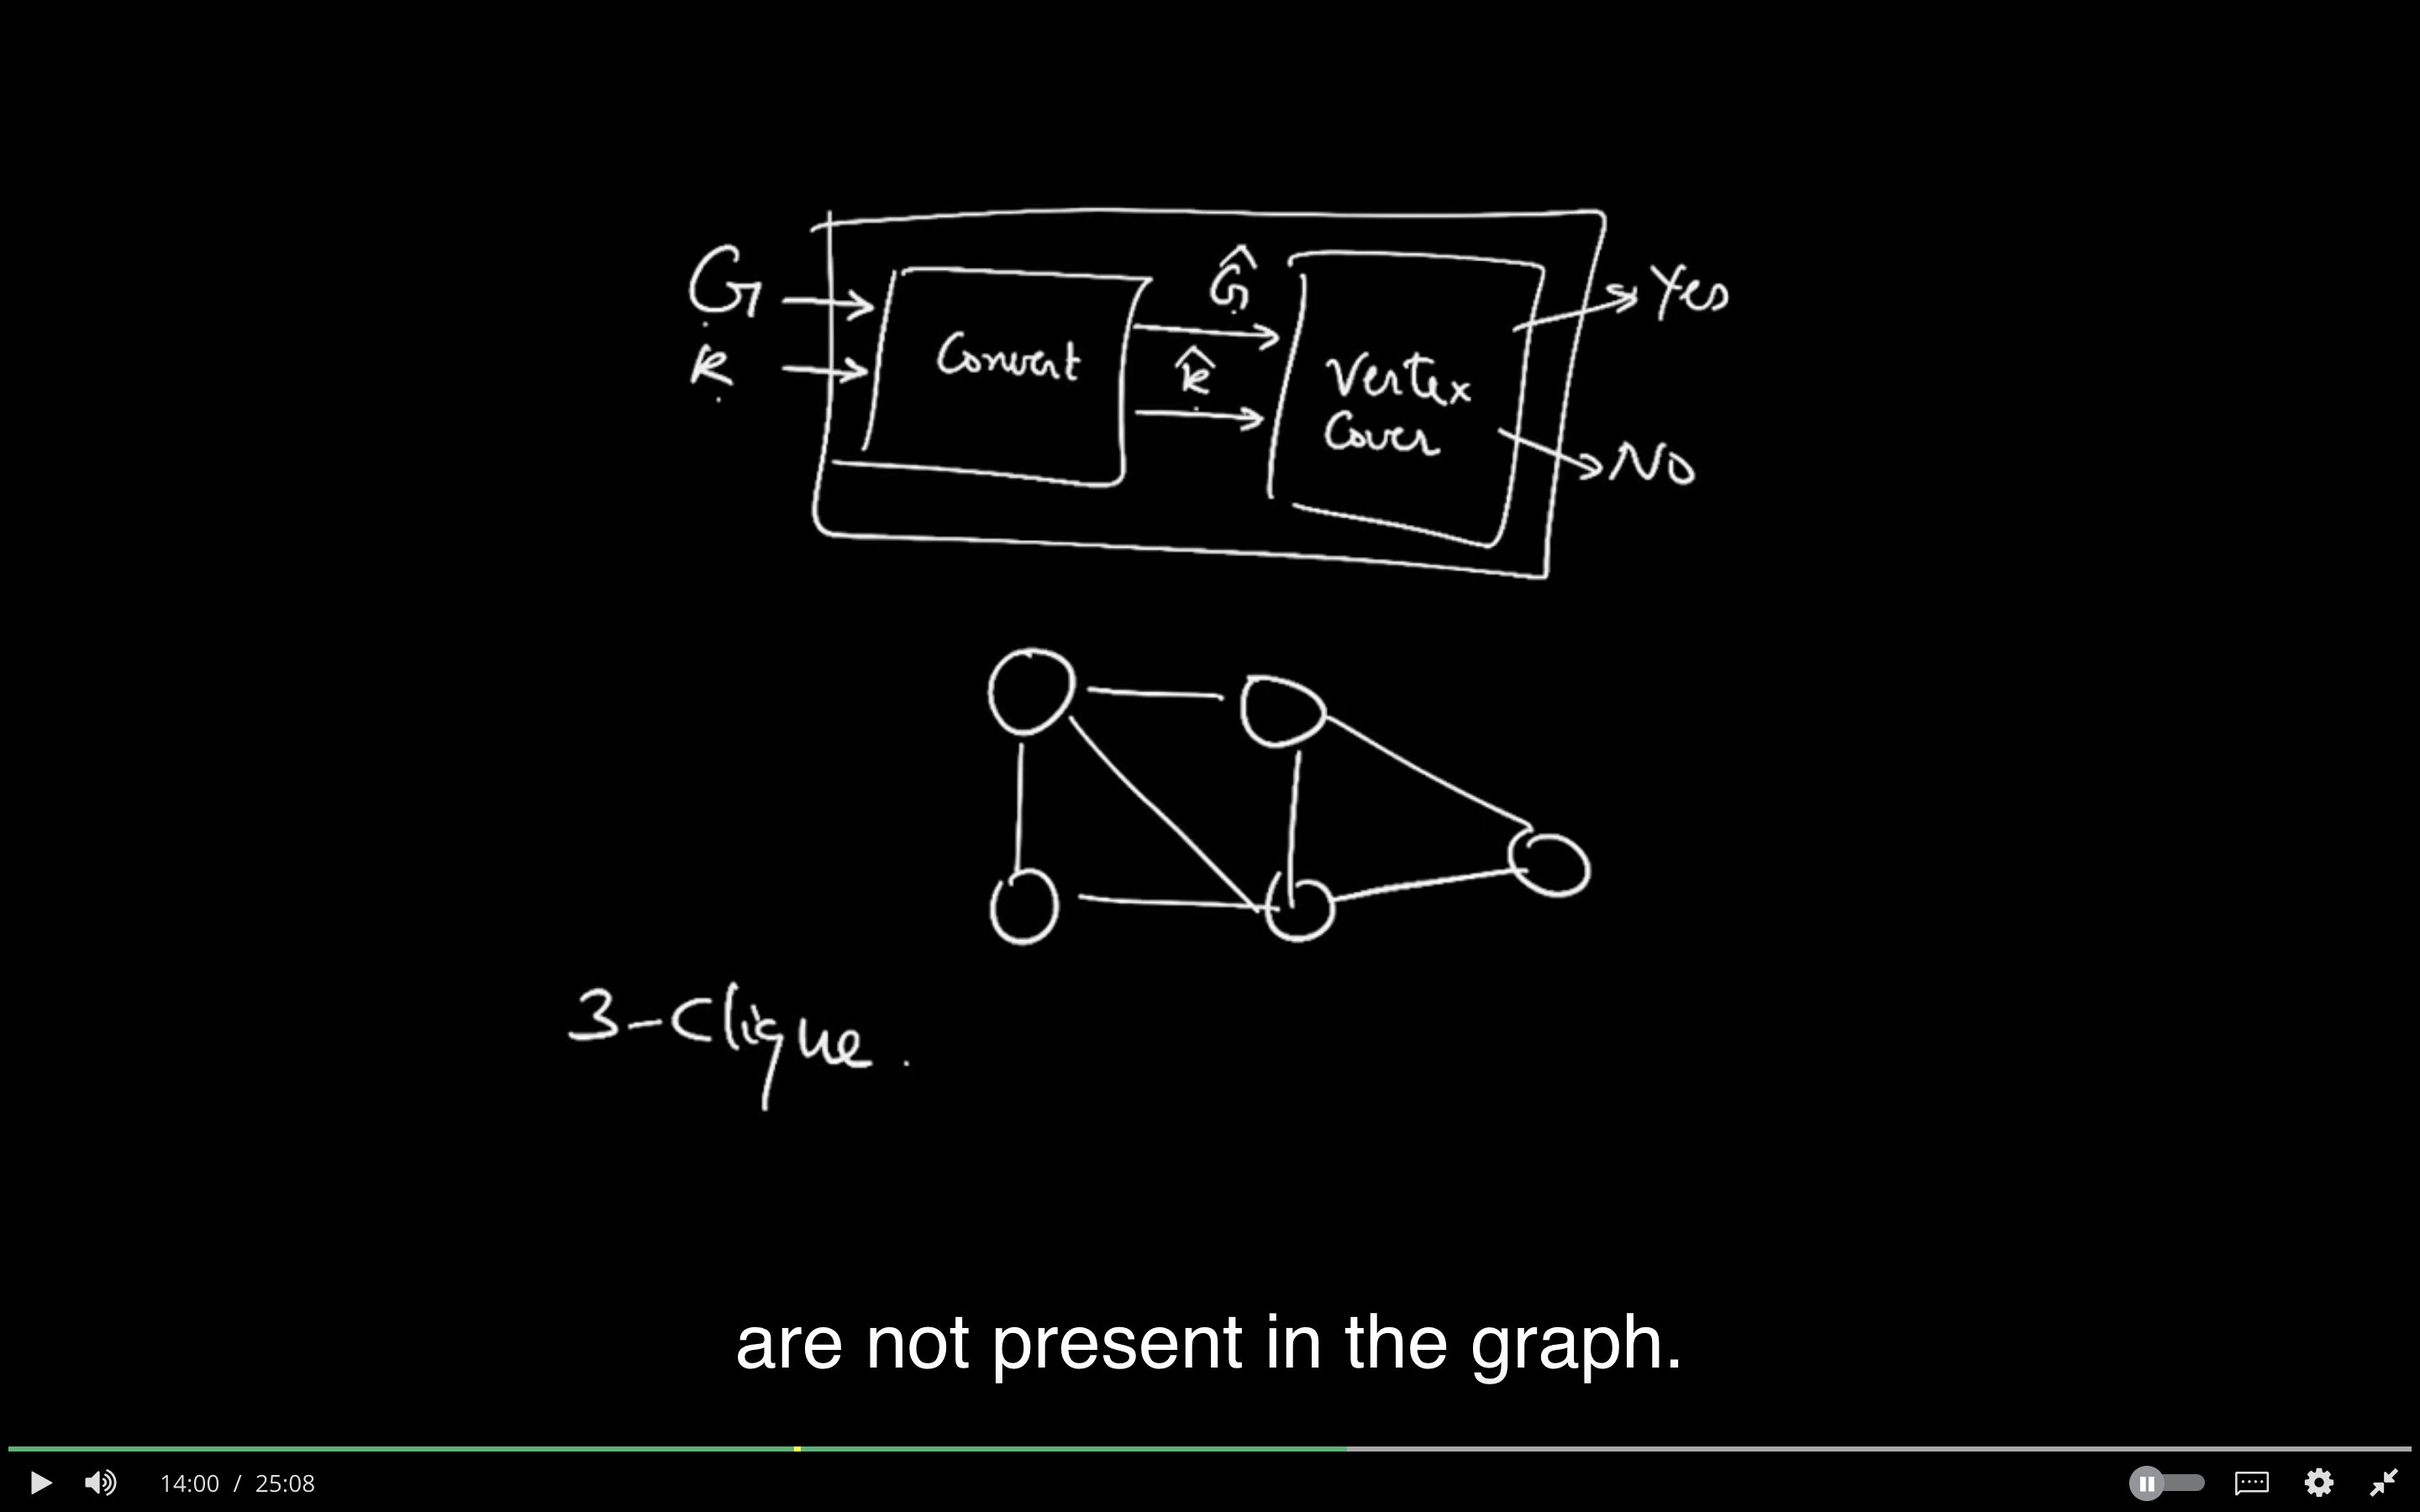 G
k
Convert
Ĝ
k̂
Vertex
Cover
Yes
No
3-Clique.
are not present in the graph.
14:00 / 25:08